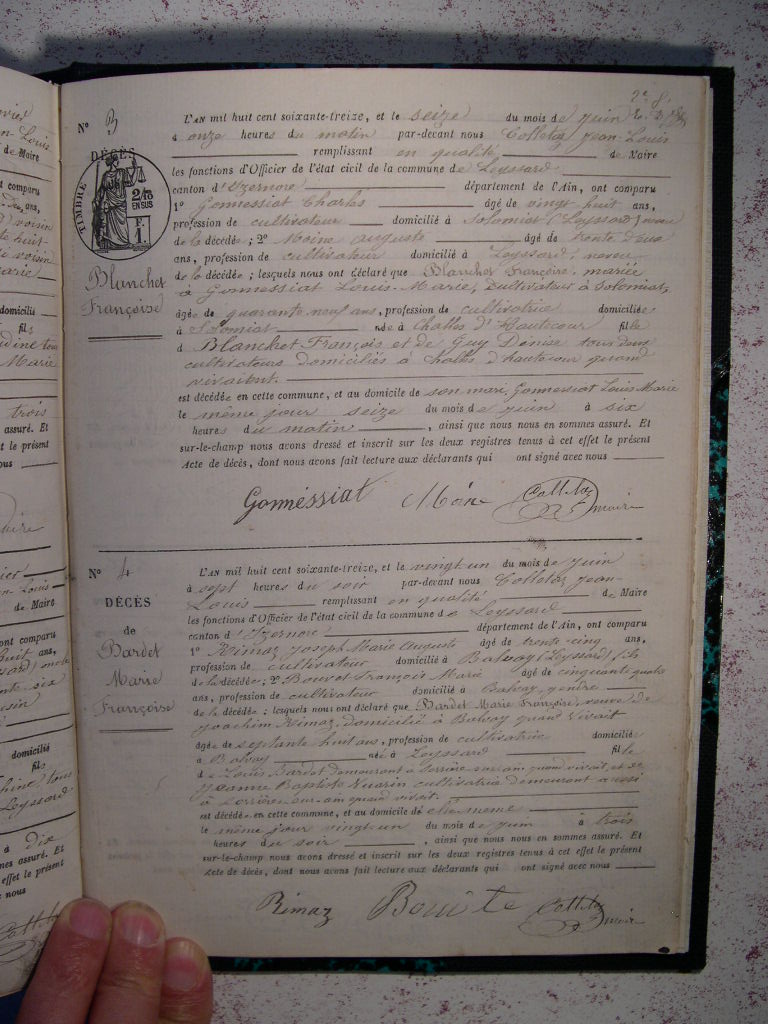 N° 3
DÉCÈS
TIMBRE
2/10
EN SUS
F.
1
Blanchet
Françoise
L'AN mil huit cent soixante-treize, et le seize du mois de juin
à onze heures du matin par-devant nous Colletaz Jean-Louis
remplissant en qualité de Maire
les fonctions d'Officier de l'état civil de la commune de Leyssard
canton d'Izernore département de l'Ain, ont comparu
1° Gonnessiat Charles âgé de vingt huit ans,
profession de cultivateur domicilié à Solomiat (Leyssard) neveu
de la décédée; 2° Moine auguste âgé de trente deux
ans, profession de cultivateur domicilié à Leyssard, neveu
de la décédée; lesquels nous ont déclaré que Blanchet Françoise, mariée
à Gonnessiat Louis-Marie, cultivateur à Solomiat,
âgée de quarante neuf ans, profession de cultivatrice domiciliée
à Solomiat née à Challes d'Hautecour fille
d Blanchet François et de Guy Denise tous deux
cultivateurs domiciliés à Challes d'hautecour quand
vivaient.
est décédée en cette commune, et au domicile de son mari, Gonnessiat Louis Marie
le même jour seize du mois de juin à six
heures du matin, ainsi que nous nous en sommes assuré. Et
sur-le-champ nous avons dressé et inscrit sur les deux registres tenus à cet effet le présent
Acte de décès, dont nous avons fait lecture aux déclarants qui ont signé avec nous
Gonnéssiat Moine Colletaz maire
N° 4
DÉCÈS
de
Bardet
Marie
Françoise
L'AN mil huit cent soixante-treize, et le vingt un du mois de juin
à sept heures du soir par-devant nous Colletaz Jean-
Louis remplissant en qualité de Maire
les fonctions d'Officier de l'état civil de la commune de Leyssard
canton d'Izernore département de l'Ain, ont comparu
1° Rimaz Joseph Marie Auguste âgé de trente cinq ans,
profession de cultivateur domicilié à Balvay (Leyssard) fils
de la décédée; 2° Bouvet François Marie âgé de cinquante quatre
ans, profession de cultivateur domicilié à Balvay, gendre
de la décédée; lesquels nous ont déclaré que Bardet Marie Françoise, veuve de
Joachim Rimaz, domicilié à Balvay quand vivait
âgée de septante huit ans, profession de cultivatrice domiciliée
à Balvay née à Leyssard fille
de Louis Bardet demeurant à Serrières sur ain quand vivait, et de
Jeanne Baptiste Guarin cultivatrice demeurant aussi
à Serrières-sur-ain quand vivait.
est décédée en cette commune, et au domicile de elle même
le même jour vingt un du mois de juin à trois
heures du soir, ainsi que nous nous en sommes assuré. Et
sur-le-champ nous avons dressé et inscrit sur les deux registres tenus à cet effet le présent
Acte de décès, dont nous avons fait lecture aux déclarants qui ont signé avec nous
Rimaz Bouvet Colletaz maire